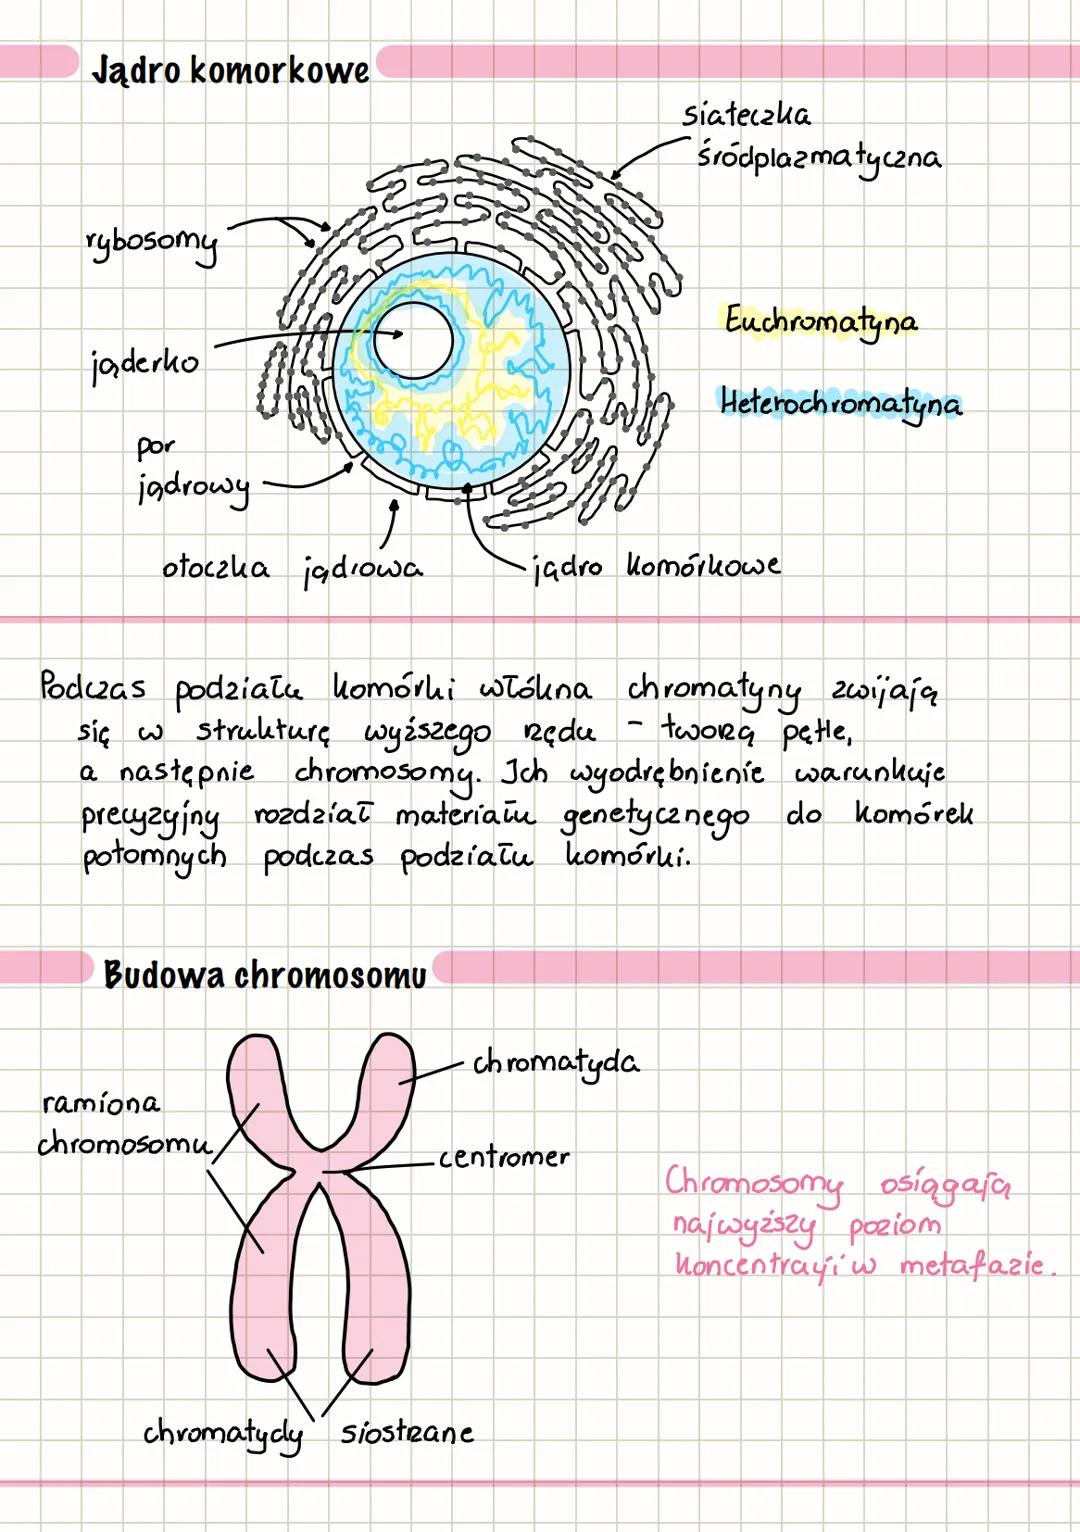 Jądro komorkowe
siateczka
śródplazmatyczna
rybosomy
Euchromatyna
jąderko
Heterochromatyna
por
jądrowy
otoczka jądrowa
jądro komórkowe
Podczas podziału komórki włókna chromatyny zwijają
się w strukturę wyższego rzędu - tworzą pętle,
a następnie chromosomy. Ich wyodrębnienie warunkuje
precyzyjny rozdział materiału genetycznego do komórek
potomnych podczas podziału komórki.
Budowa chromosomu
chromatyda
ramiona
chromosomu
centromer
Chromosomy osiągają
najwyższy poziom
koncentracji w metafazie.
chromatydy siostrzane